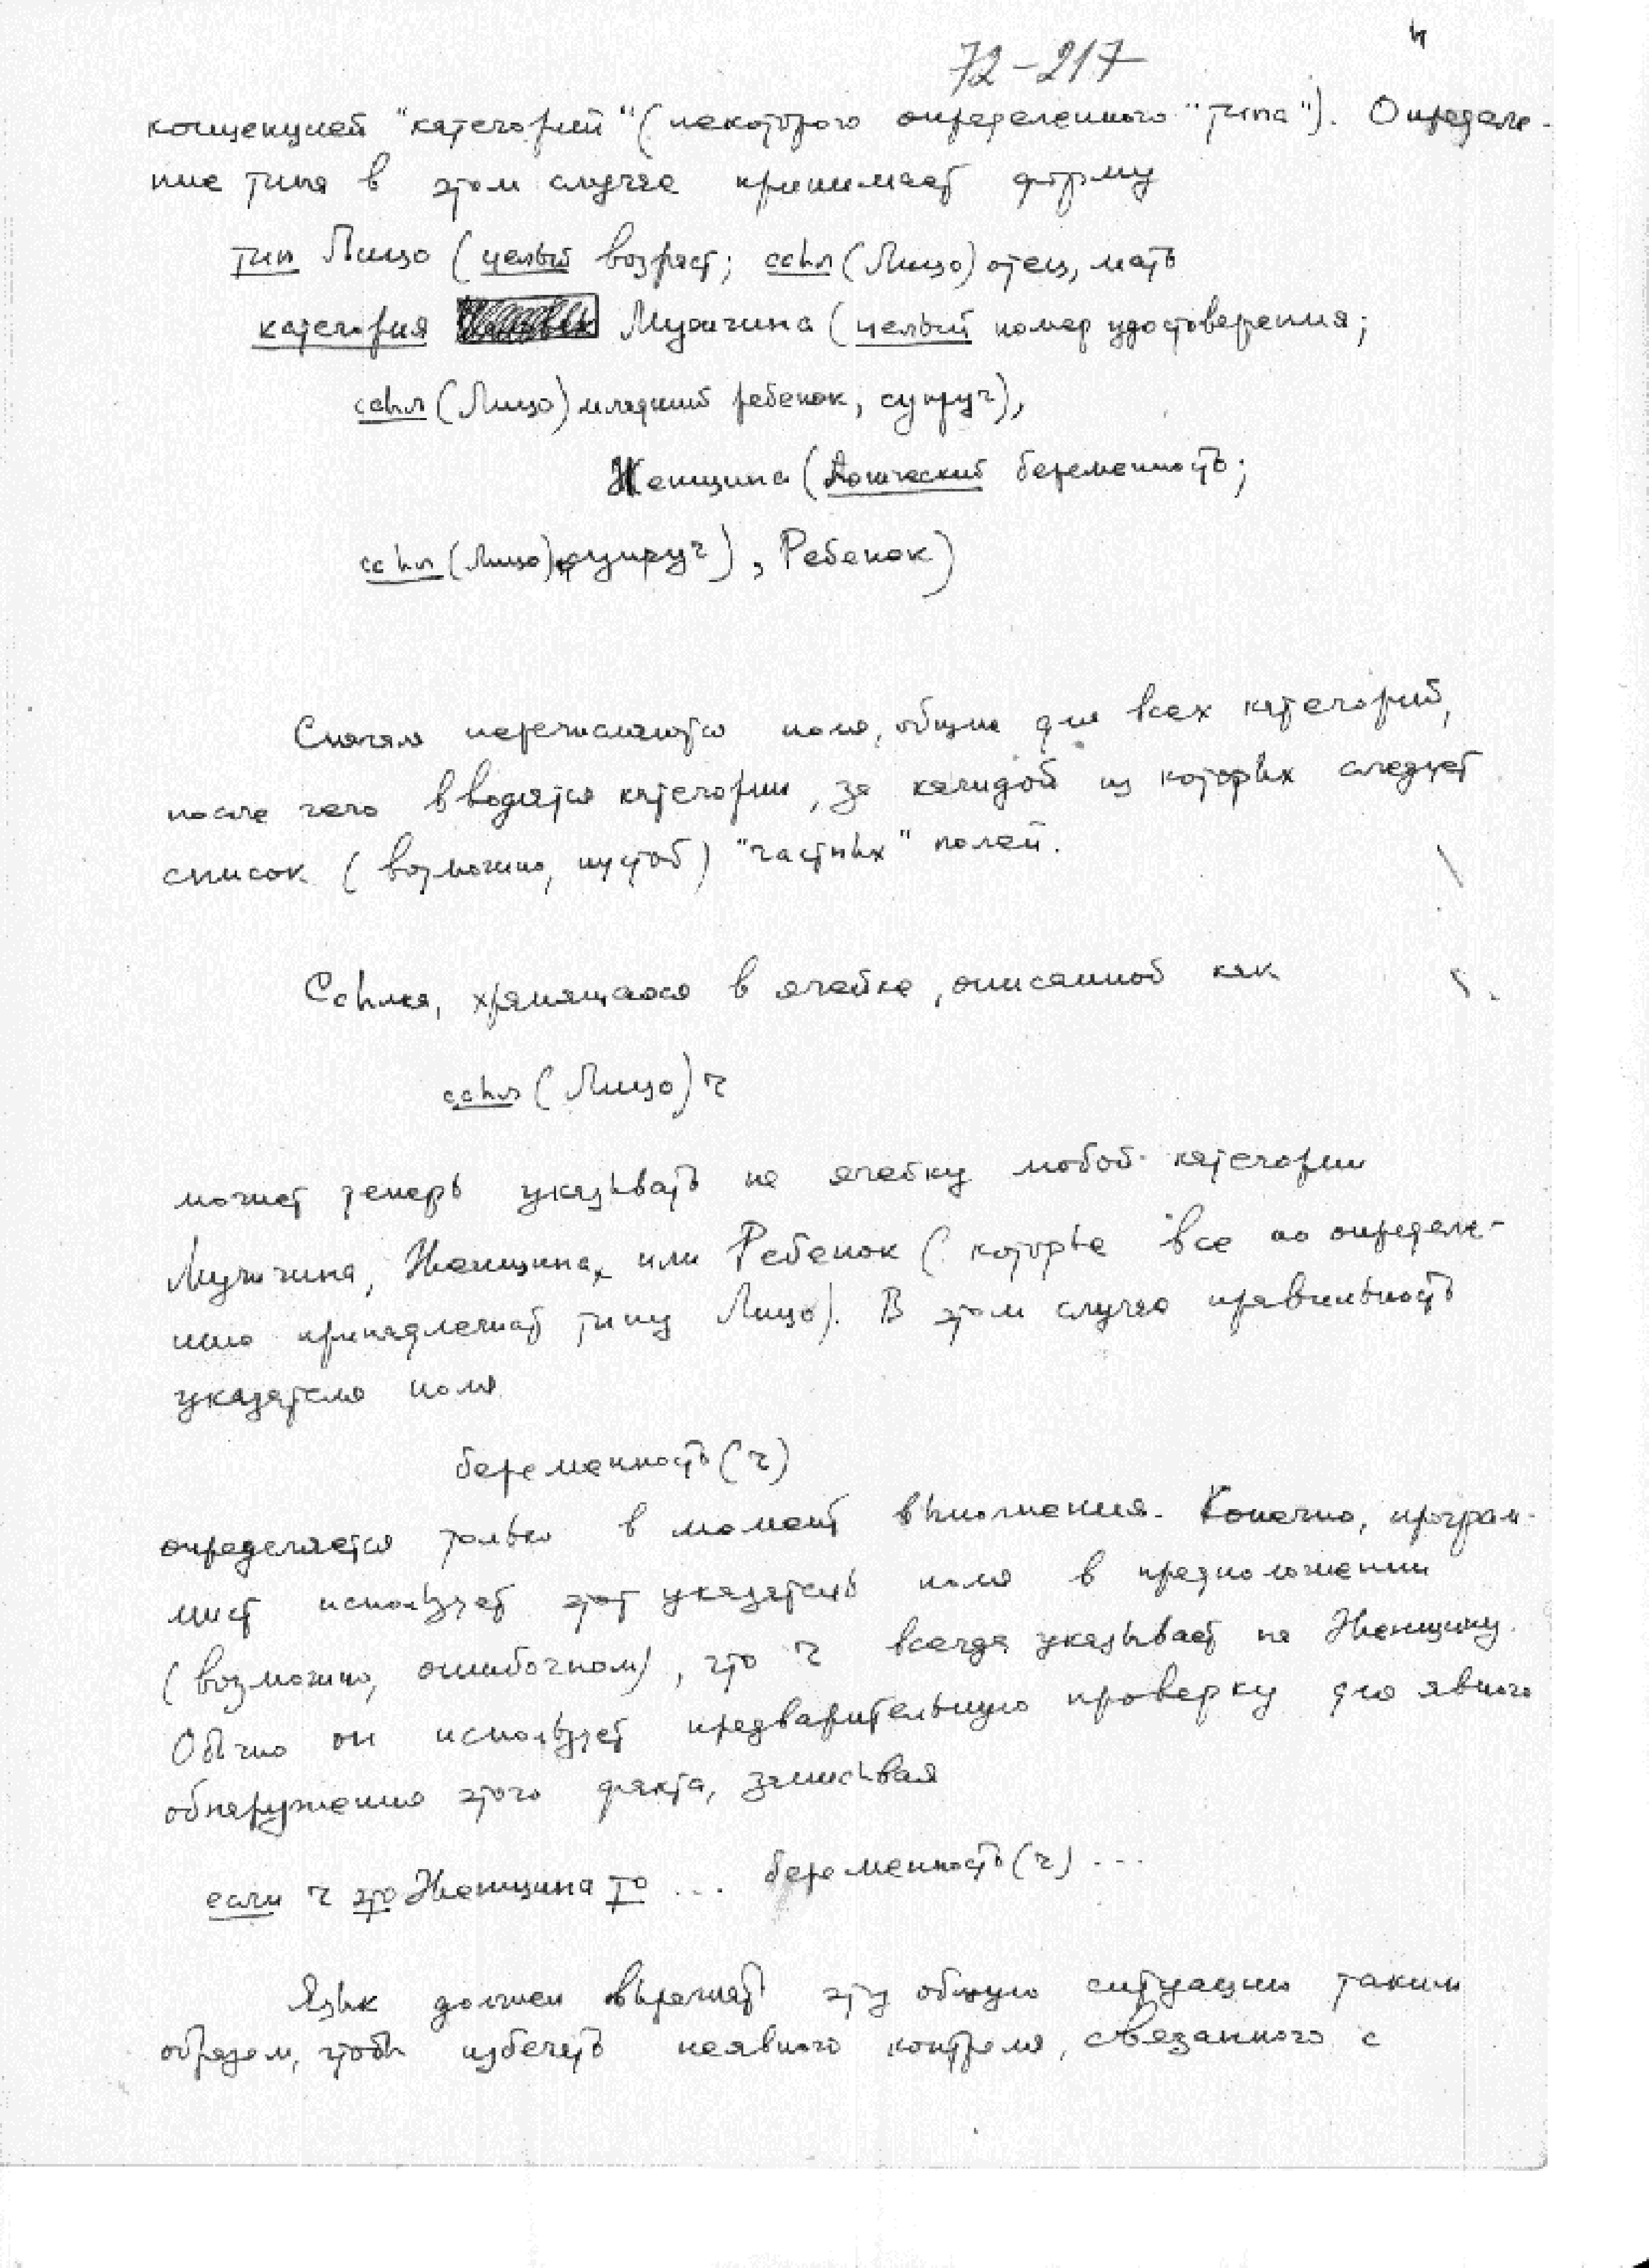 72-217
4
концепцией "категорий" (некоторого определенного "типа"). Определе-
ние типа в этом случае принимает форму
тип Лицо (целый возраст; ссыл(Лицо) отец, мать
категория Мужчина (целый номер удостоверения;
ссыл(Лицо) младший ребенок, супруг),
Женщина (логический беременность;
ссыл(Лицо) супруг), Ребенок)
Сначала перечисляются поля, общие для всех категорий,
после чего вводятся категории, за каждой из которых следует
список (возможно, пустой) "частных" полей.
Ссылка, хранящаяся в ячейке, описанной как
ссыл(Лицо) ч
может теперь указывать на ячейку любой категории
Мужчина, Женщина, или Ребенок (которые все по определе-
нию принадлежат типу Лицо). В этом случае правильность
указателя поля
беременность(ч)
определяется только в момент выполнения. Конечно, програм-
мист использует этот указатель поля в предположении
(возможно, ошибочном), что ч всегда указывает на Женщину.
Обычно он использует предварительную проверку для явного
обнаружения этого факта, записывая
если ч это Женщина то ... беременность(ч) ...
Язык должен выражать эту общую ситуацию таким
образом, чтобы избегать неявного контроля, связанного с